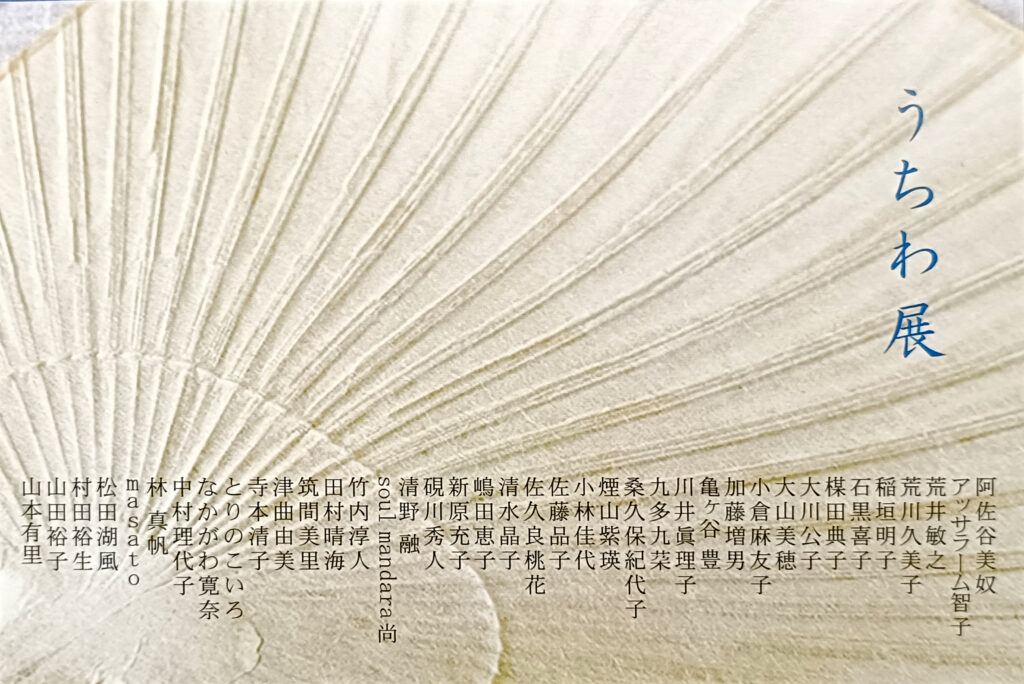 うちわ展
阿佐谷美奴
アッサラーム智子
荒井敏之
荒川久美子
稲垣明子
石黒喜子
楳田典子
大川公子
大山美穂
小倉麻友子
加藤増男
亀ヶ谷 豊
川井眞理子
九多九菜
桑久保紀代子
煙山紫瑛
小林佳代
佐藤晶子
佐久良桃花
清水晶子
嶋田恵子
新原充子
硯川秀人
清野 融
soul mandara尚
竹内淳人
田村晴海
筑間美里
津曲由美
寺本清子
とりのこいろ
なかがわ寛奈
中村理代子
林 真帆
masato
松田湖風
村田裕生
山田裕子
山本有里